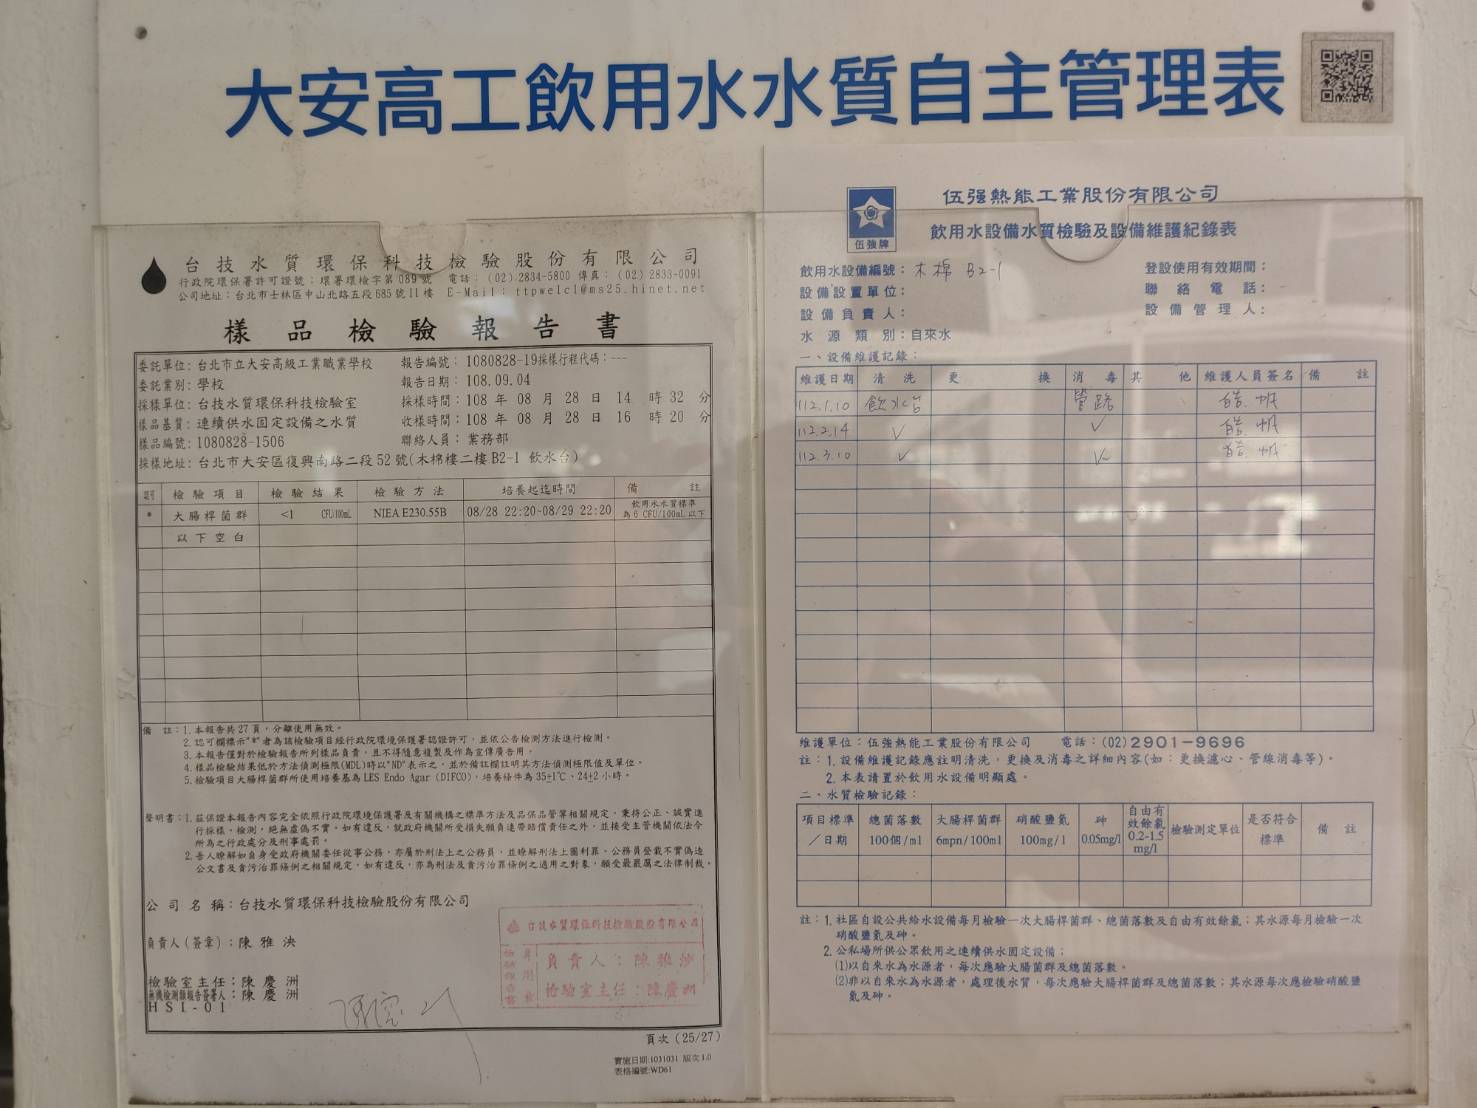 大安高工飲用水水質自主管理表
台技水質環保科技檢驗股份有限公司
行政院環保署許可證號：環署環檢字第089號 電話：(02)2834-5800 傳真：(02)2833-0091
公司地址：台北市士林區中山北路五段685號11樓 E-Mail：ttpwelcl@ms25.hinet.net
樣品檢驗報告書
委託單位：台北市立大安高級工業職業學校 報告編號：1080828-19採樣行程代碼：---
委託業別：學校 報告日期：108.09.04
採樣單位：台技水質環保科技檢驗室 採樣時間：108 年 08 月 28 日 14 時 32 分
樣品基質：連續供水固定設備之水質 收樣時間：108 年 08 月 28 日 16 時 20 分
樣品編號：1080828-1506 聯絡人員：業務部
採樣地址：台北市大安區復興南路二段52號(木棉樓二樓B2-1 飲水台)
認可 檢驗項目 檢驗結果 檢驗方法 培養起迄時間 備註
* 大腸桿菌群 <1 CFU/100mL NIEA E230.55B 08/28 22:20-08/29 22:20 飲用水水質標準
為6 CFU/100mL以下
以下空白
備 註：1.本報告共27頁，分離使用無效。
2.認可欄標示"*"者為該檢驗項目經行政院環境保護署認證許可，並依公告檢測方法進行檢測。
3.本報告僅對於檢驗報告所列樣品負責，且不得隨意複製及作為宣傳廣告用。
4.樣品檢驗結果低於方法偵測極限(MDL)時以"ND"表示之，並於備註欄註明其方法偵測極限值及單位。
5.檢驗項目大腸桿菌群所使用培養基為LES Endo Agar (DIFCO)，培養條件為35±1℃、24±2小時。
聲明書：1.茲保證本報告內容完全依照行政院環境保護署及有關機構之標準方法及品保品管等相關規定，秉持公正、誠實進
行採樣、檢測，絕無虛偽不實，如有違反，就政府機關所受損失願負連帶賠償責任之外，並接受主管機關依法令
所為之行政處分及刑事處罰。
2.吾人瞭解如自身受政府機關委任從事公務，亦屬於刑法上之公務員，並瞭解刑法上圖利罪、公務員登載不實偽造
公文書及貪污治罪條例之相關規定，如有違反，亦為刑法及貪污治罪條例之適用之對象，願受最嚴厲之法律制裁。
公司名稱：台技水質環保科技檢驗股份有限公司
負責人(簽章)：陳雅泱
檢驗室主任：陳慶洲
無機檢測類報告簽署人：陳慶洲
HSI-01
台技水質環保科技檢驗股份有限公司
負責人：陳雅泱
檢驗室主任：陳慶洲
頁次(25/27)
實施日期:1031031 版次1.0
表格編號:WD61
伍強牌
伍强熱能工業股份有限公司
飲用水設備水質檢驗及設備維護紀錄表
飲用水設備編號：木棉 B2-1 登設使用有效期間：
設備設置單位： 聯絡電話：
設備負責人： 設備管理人：
水源類別：自來水
一、設備維護記錄：
維護日期 清洗 更換 消毒 其他 維護人員簽名 備註
112.1.10 飲水台 管路
112.2.14 ✓ ✓
112.3.10 ✓ ✓
維護單位：伍强熱能工業股份有限公司 電話：(02)2901-9696
註：1.設備維護記錄應註明清洗，更換及消毒之詳細內容(如：更換濾心、管線消毒等)。
2.本表請置於飲用水設備明顯處。
二、水質檢驗記錄：
項目標準／日期 總菌落數100個/ml 大腸桿菌群6mpn/100ml 硝酸鹽氮100mg/l 砷0.05mg/l 自由有效餘氯0.2-1.5mg/l 檢驗測定單位 是否符合標準 備註
註：1.社區自設公共給水設備每月檢驗一次大腸桿菌群、總菌落數及自由有效餘氯；其水源每月檢驗一次
硝酸鹽氮及砷。
2.公私場所供公眾飲用之連續供水固定設備：
(1)以自來水為水源者，每次應驗大腸菌群及總菌落數。
(2)非以自來水為水源者，處理後水質，每次應驗大腸桿菌群及總菌落數；其水源每次應檢驗硝酸鹽
氮及砷。